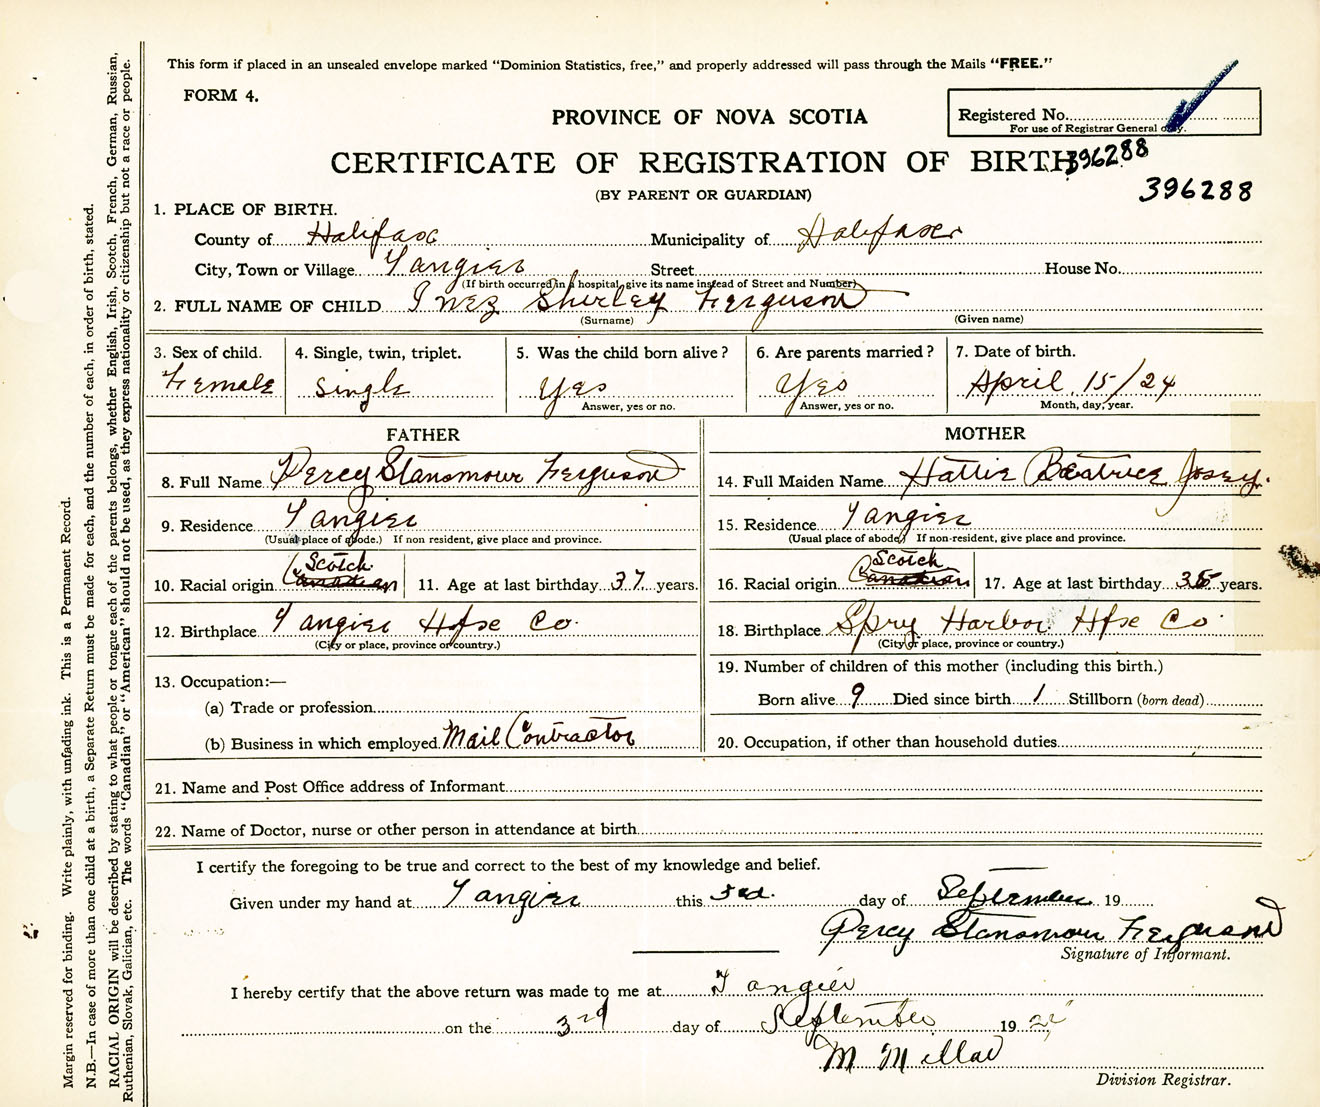 This form if placed in an unsealed envelope marked "Dominion Statistics, free," and properly addressed will pass through the Mails "FREE."
FORM 4.
PROVINCE OF NOVA SCOTIA
Registered No.
For use of Registrar General only.
CERTIFICATE OF REGISTRATION OF BIRTH
396288
396288
(BY PARENT OR GUARDIAN)
1. PLACE OF BIRTH.
County of Halifax Municipality of Halifax
City, Town or Village Tangier Street House No.
(If birth occurred in a hospital, give its name instead of Street and Number)
2. FULL NAME OF CHILD Inez Shirley Ferguson
(Surname) (Given name)
3. Sex of child. 4. Single, twin, triplet. 5. Was the child born alive? 6. Are parents married? 7. Date of birth.
Female Single Yes Yes April 15/24
Answer, yes or no. Answer, yes or no. Month, day, year.
FATHER MOTHER
8. Full Name Percy Stansmour Ferguson 14. Full Maiden Name Hattie Beatrice Josey.
9. Residence Tangier 15. Residence Tangier
(Usual place of abode.) If non resident, give place and province. (Usual place of abode) If non-resident, give place and province.
Scotch Scotch
10. Racial origin Canadian 11. Age at last birthday 37 years. 16. Racial origin Canadian 17. Age at last birthday 35 years.
12. Birthplace Tangier Hfse Co. 18. Birthplace Spry Harbor Hfse Co
(City or place, province or country.) (City or place, province or country.)
13. Occupation:— 19. Number of children of this mother (including this birth.)
(a) Trade or profession Born alive 9 Died since birth 1 Stillborn (born dead)
(b) Business in which employed Mail Contractor 20. Occupation, if other than household duties
21. Name and Post Office address of Informant
22. Name of Doctor, nurse or other person in attendance at birth
I certify the foregoing to be true and correct to the best of my knowledge and belief.
Given under my hand at Tangier this 3rd. day of September 19
Percy Stansmour Ferguson
Signature of Informant.
I hereby certify that the above return was made to me at Tangier
on the 3rd day of September 19 24
M Millar
Division Registrar.
Margin reserved for binding. Write plainly, with unfading ink. This is a Permanent Record.
N.B.—In case of more than one child at a birth, a Separate Return must be made for each, and the number of each, in order of birth, stated.
RACIAL ORIGIN will be described by stating to what people or tongue each of the parents belongs, whether English, Irish, Scotch, French, German, Russian,
Ruthenian, Slovak, Galician, etc. The words "Canadian" or "American" should not be used, as they express nationality or citizenship but not a race or people.